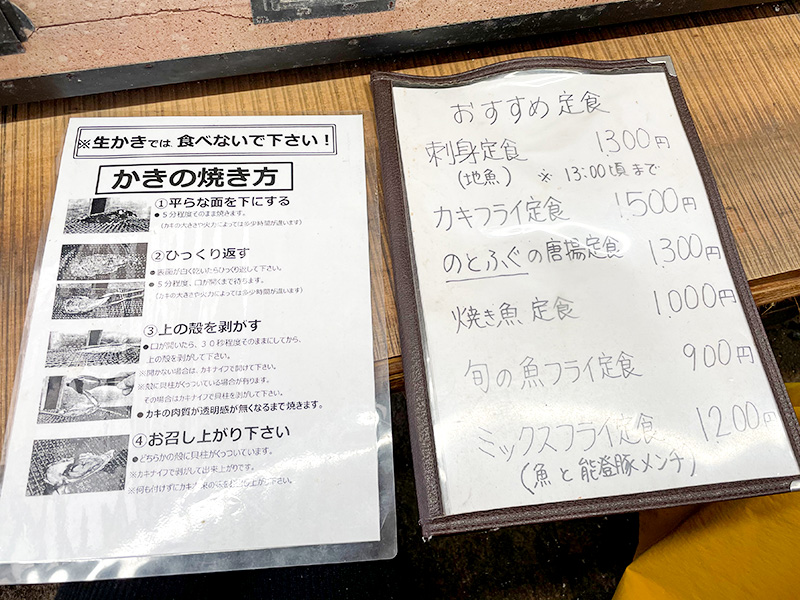 ※生かきでは 食べないで下さい！
かきの焼き方
①平らな面を下にする
●５分程度そのまま焼きます。
（カキの大きさや火力によっては多少時間が違います）
②ひっくり返す
●表面が白く乾いたらひっくり返して下さい。
●５分程度、口が開くまで待ちます。
（カキの大きさや火力によっては多少時間が違います）
③上の殻を剥がす
●口が開いたら、３０秒程度そのままにしてから、
上の殻を剥がして下さい。
※開かない場合は、カキナイフで開けて下さい。
※殻に貝柱がくっついている場合が有ります。
その場合はカキナイフで貝柱を剥がして下さい。
●カキの肉質が透明感が無くなるまで焼きます。
④お召し上がり下さい
●どちらかの殻に貝柱がくっついています。
※カキナイフで剥がして出来上がりです。
※何も付けずにカキ本来の味をお召し上がり下さい。
おすすめ定食
刺身定食 1300円
（地魚） ※ 13:00頃まで
カキフライ定食 1500円
のとふぐの唐揚定食 1300円
焼き魚定食 1000円
旬の魚フライ定食 900円
ミックスフライ定食 1200円
（魚と能登豚メンチ）